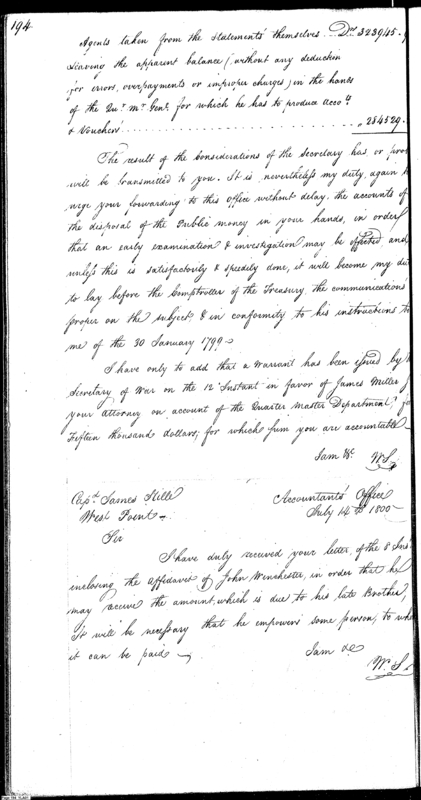 194
Agents taken from the statements themselves Dolrs 323945.
leaving the apparent balance (without any deduction
for errors, overpayments or improper charges) in the hands
of the Qur. Mr. Genl. for which he has to produce Accots.
& Vouchers " 284529.
The result of the Considerations of the Secretary has, or
will be transmitted to you. It is nevertheless my duty, again
urge your forwarding to this Office without delay, the accounts of
the disposal of the Public money in your hands, in order
that an early examination & investigation may be effected and
unless this is satisfactorily & speedily done, it will become my
to lay before the Comptroller of the Treasury the communications
proper on the subject & in conformity to his instructions to
me of the 30 January 1799.
I have only to add that a Warrant has been issued by
Secretary of War on the 12 Instant in favor of James Miller
your attorney on account of the Quarter Master Department,
Fifteen thousand dollars, for which sum you are accountable
I am &c. W. S.
Capt. James Stille Accountants Office
West Point July 14th 1800
Sir
I have duly received your letter, of the 8 Inst
inclosing the affidavit of John Winchester, in order that he
may receive the amount, which is due to his late Brother,
It will be necessary that he empowers some person, to
it can be paid
I am &c
W. S.